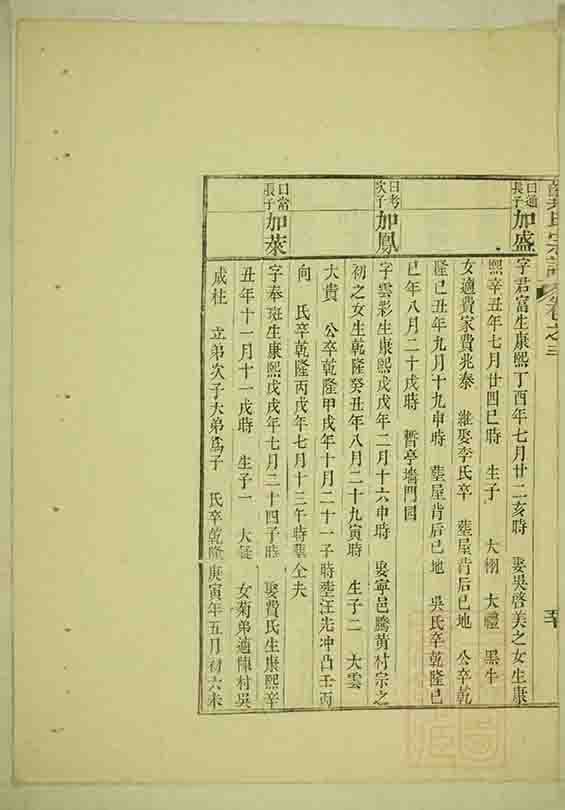 氏宗譜 卷之三
曰通長子 加盛
字君富生康熙丁酉年七月廿二亥時 娶吳啓美之女生康
熙辛丑年七月廿四巳時 生子 大栩 大禮 黑牛
女適費家費兆泰 繼娶李氏卒 塟屋背后己地 公卒乾
隆己丑年九月十九申時 塟屋背后己地 吳氏卒乾隆己
巳年八月二十戌時 暫亭墻門囬
曰考次子 加鳳
字雲彩生康熙戊戌年二月十六申時 娶寧邑騰黄村宗之
初之女生乾隆癸丑年八月二十九寅時 生子二 大雲
大貴 公卒乾隆甲戌年十月二十一子時塟汪先冲凸壬丙
向 氏卒乾隆丙戌年七月十三午時塟仝夫
曰當長子 加萊
字奉班生康熙戊戌年七月二十四子時 娶費氏生康熙辛
丑年十一月十一戌時 生子一 大 女菊弟適陳村吳
成柱 立弟次子大弟爲子 氏卒乾隆庚寅年五月初六未